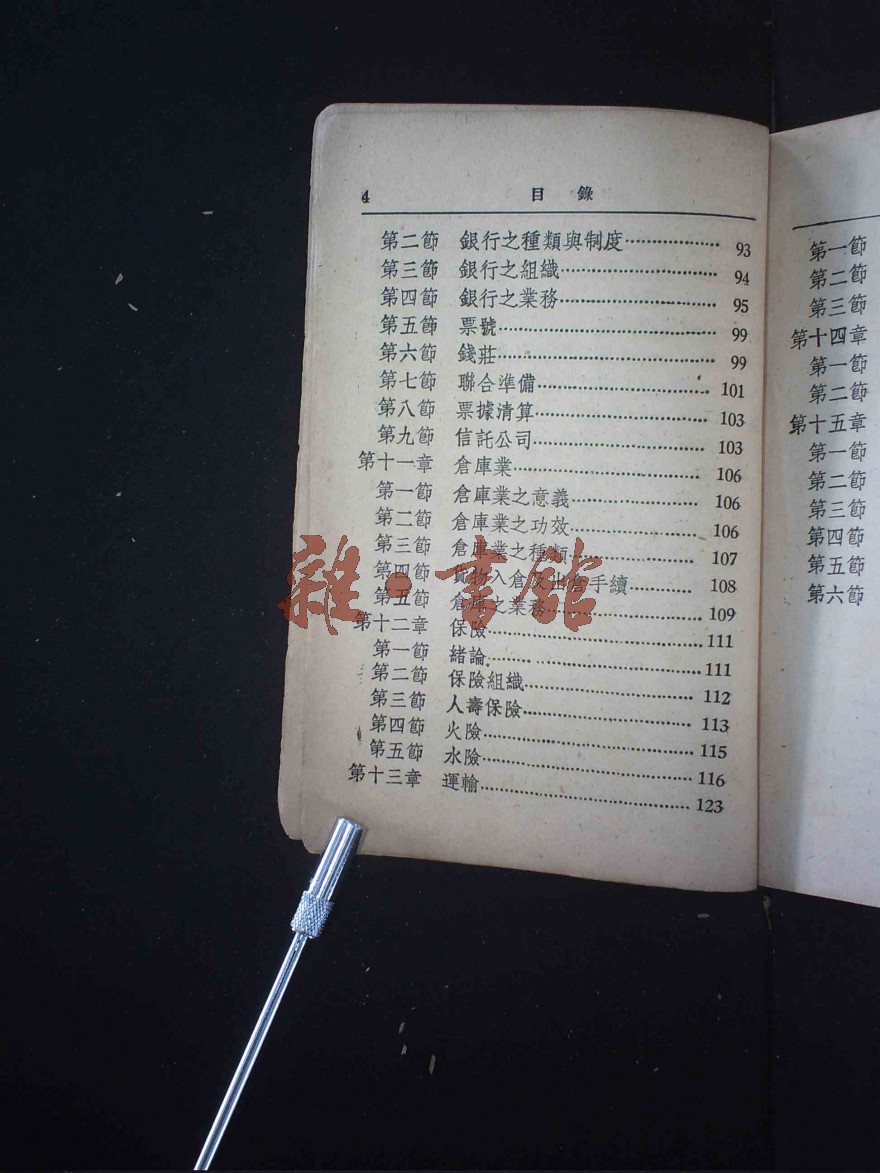 4 目錄
第二節 銀行之種類與制度 93
第三節 銀行之組織 94
第四節 銀行之業務 95
第五節 票號 99
第六節 錢莊 99
第七節 聯合準備 101
第八節 票據清算 103
第九節 信託公司 103
第十一章 倉庫業 106
第一節 倉庫業之意義 106
第二節 倉庫業之功效 106
第三節 倉庫業之種類 107
第四節 貨物入倉及出倉手續 108
第五節 倉庫之業務 109
第十二章 保險 111
第一節 緒論 111
第二節 保險組織 112
第三節 人壽保險 113
第四節 火險 115
第五節 水險 116
第十三章 運輸 123
第一節
第二節
第三節
第十四章
第一節
第二節
第十五章
第一節
第二節
第三節
第四節
第五節
第六節
雜·書館